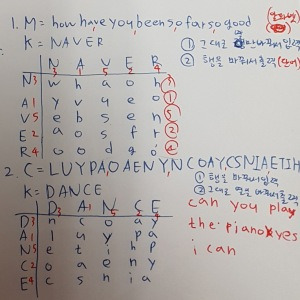 1. M = how have you been so far so good
K = NAVER
① 그대로 바꿔서입력
② 행을 바꿔서 출력 (단어)
N A V E R
3 1 5 2 4
N3 w h a o h 3
A1 y v u e o 1
V5 e b s e n 5
E2 a o s f r 2
R4 o o d g o 4
2. C = LUYPAOAENYNCOAYCSNIAETIH
K = DANCE
① 행을 바꿔서입력
② 그대로 열을 바꿔서출력
D A N C E
3 1 5 2 4
D3 n c o a y
A1 l u y p a
N5 e t i h p
C2 o a e n y
E4 c s n i a
can you play
the piano yes
i can